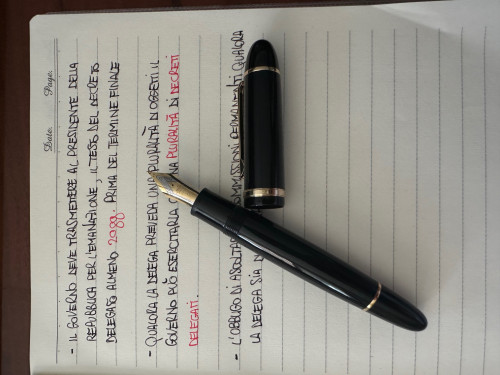 Date. Page.
- IL GOVERNO DEVE TRASMETTERE AL PRESIDENTE DELLA
REPUBBLICA PER L'EMANAZIONE, IL TESTO DEL DECRETO
DELEGATO ALMENO 20gg. PRIMA DEL TERMINE FINALE
- QUALORA LA DELEGA PREVEDA UNA PLURALITÀ DI OGGETTI IL
GOVERNO PUÒ ESERCITARLA PLURALITÀ DI DECRETI
DELEGATI.
- L'OBBLIGO DI PERMANENTI QUALORA
LA DELEGA SIA